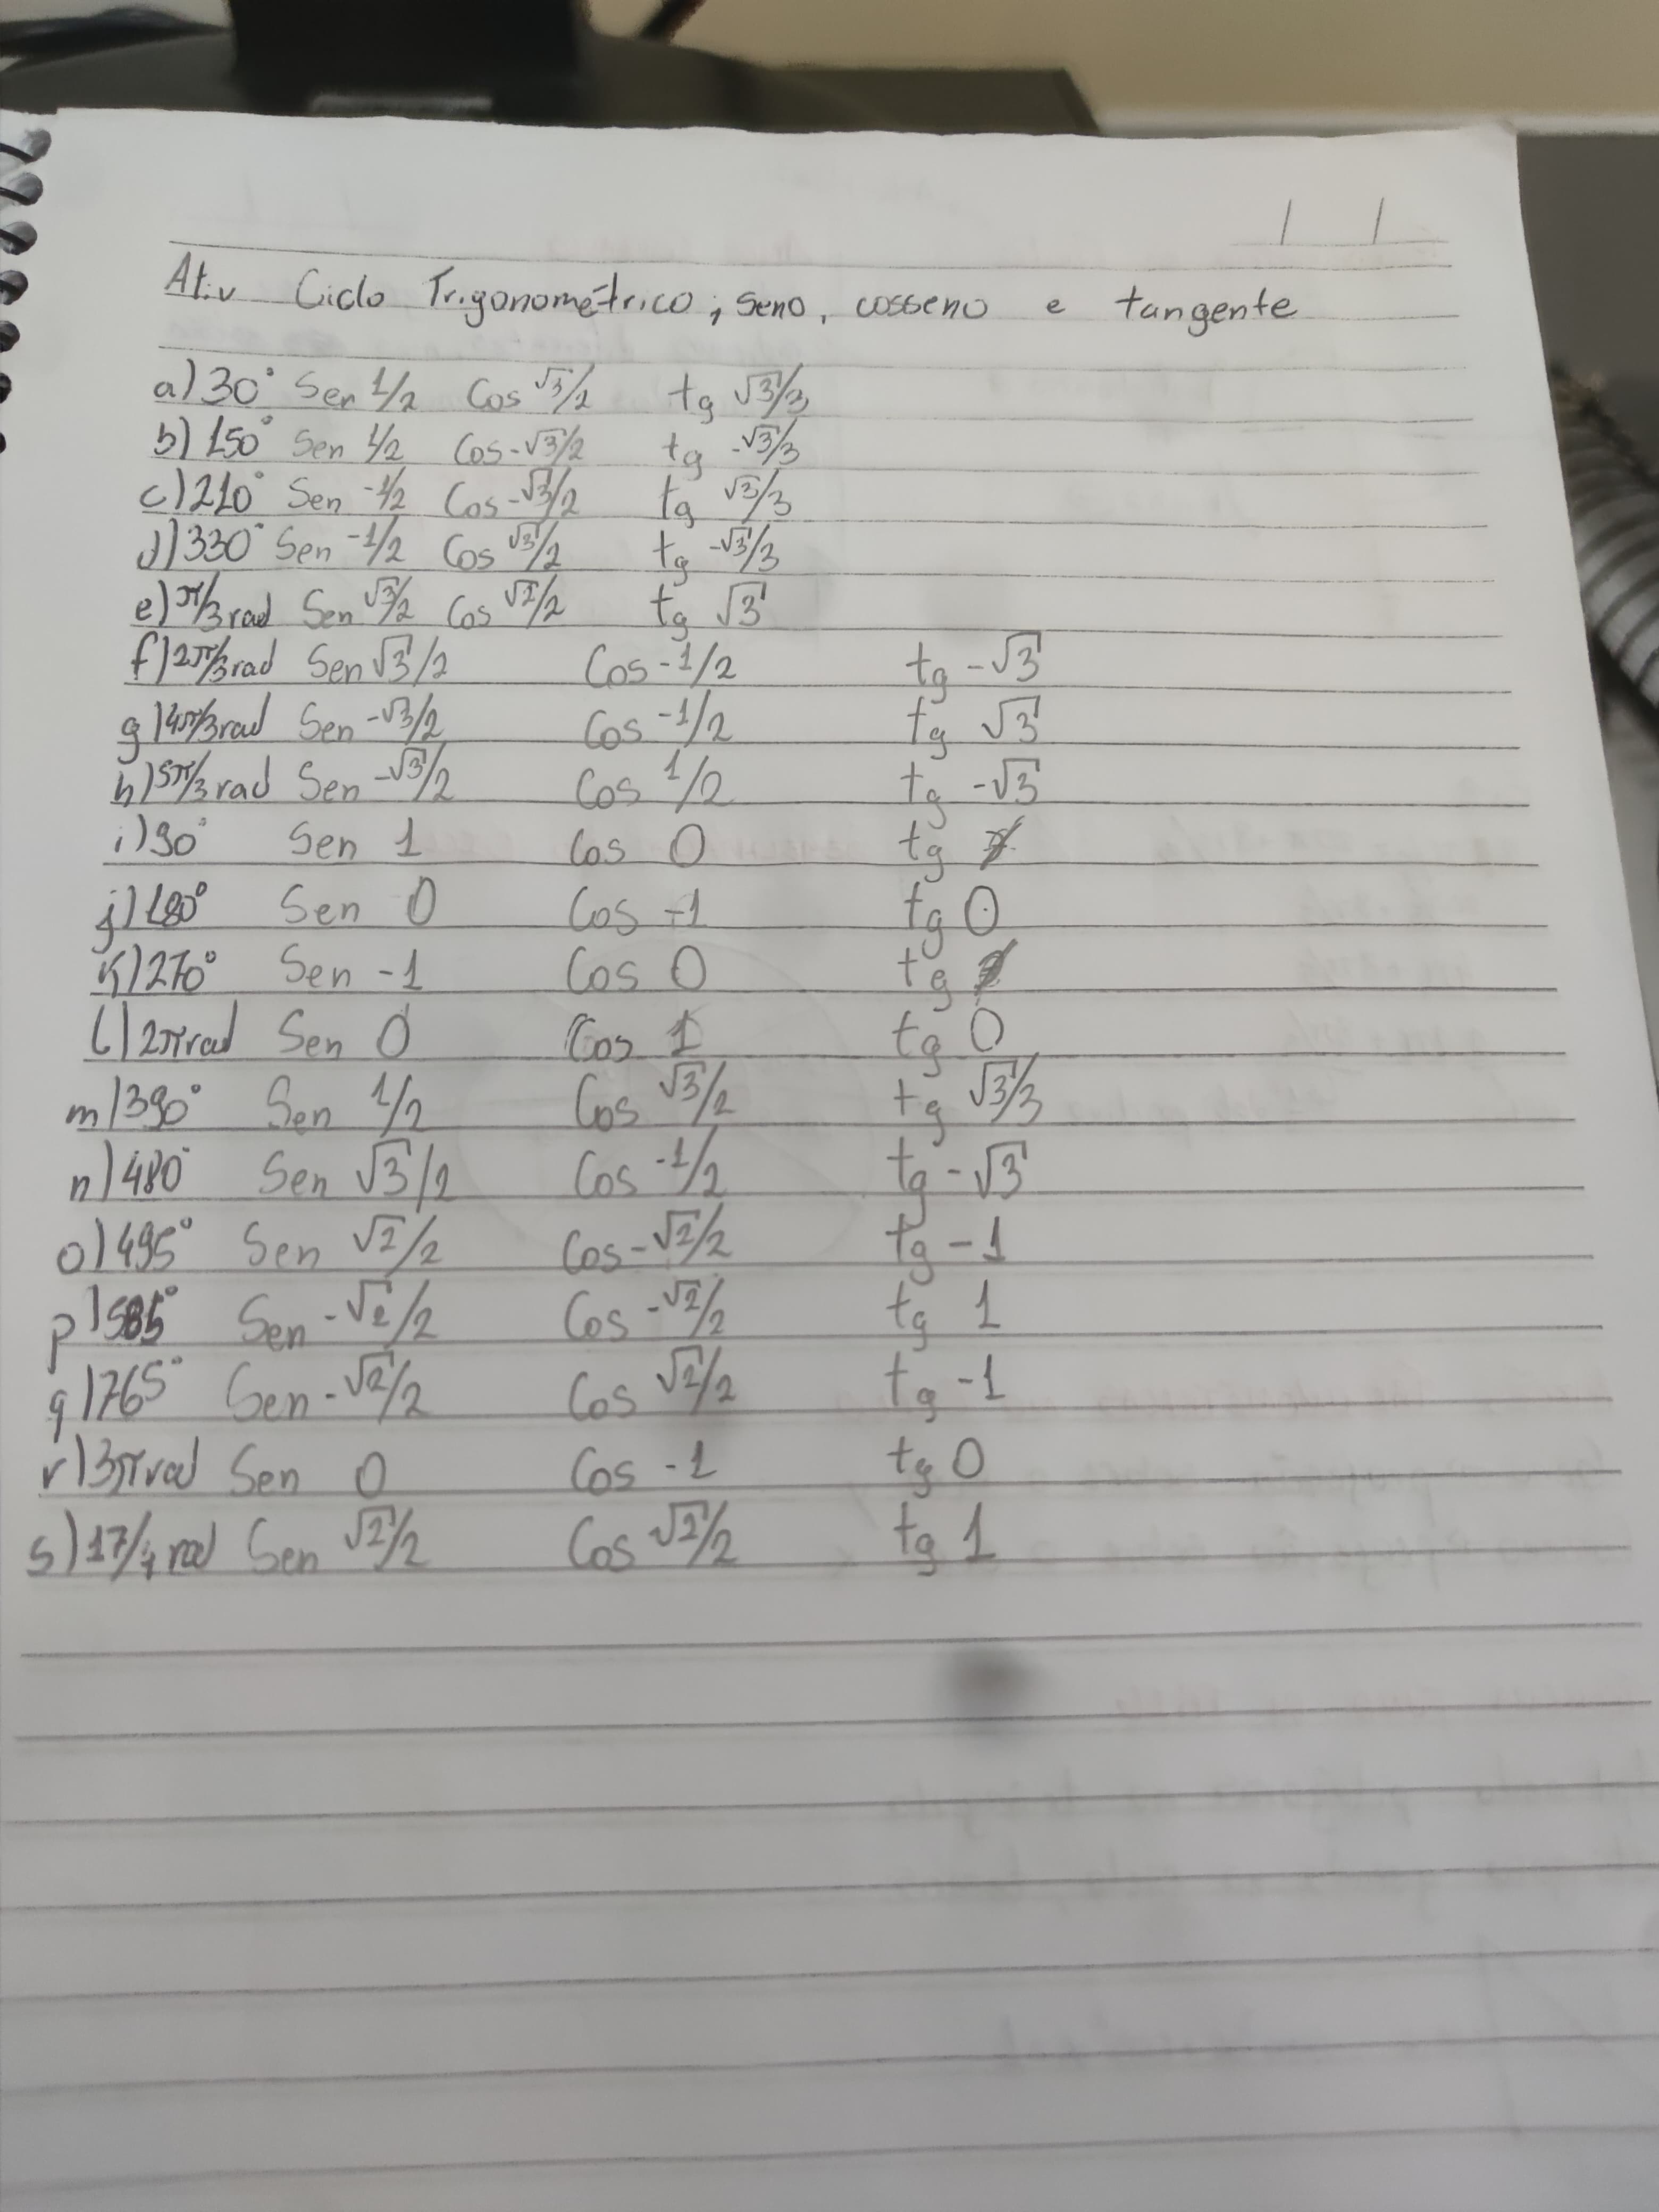 Ativ Ciclo Trigonométrico; seno, cosseno e tangente
a) 30° Sen 1/2 Cos √3/2 tg √3/3
b) 150° Sen 1/2 Cos -√3/2 tg -√3/3
c) 210° Sen -1/2 Cos -√3/2 tg √3/3
d) 330° Sen -1/2 Cos √3/2 tg -√3/3
e) π/3 rad Sen √3/2 Cos √1/2 tg √3
f) 2π/3 rad Sen √3/2 Cos -1/2 tg -√3
g) 4π/3 rad Sen -√3/2 Cos -1/2 tg √3
h) 5π/3 rad Sen -√3/2 Cos 1/2 tg -√3
i) 90° Sen 1 Cos 0 tg
j) 180° Sen 0 Cos -1 tg 0
k) 270° Sen -1 Cos 0 tg
l) 2π rad Sen 0 Cos 1 tg 0
m) 390° Sen 1/2 Cos √3/2 tg √3/3
n) 480° Sen √3/2 Cos -1/2 tg -√3
o) 495° Sen √2/2 Cos -√2/2 tg -1
p) 585° Sen -√2/2 Cos -√2/2 tg 1
q) 765° Sen -√2/2 Cos √2/2 tg -1
r) 3π rad Sen 0 Cos -1 tg 0
s) 17/4 rad Sen √2/2 Cos √2/2 tg 1